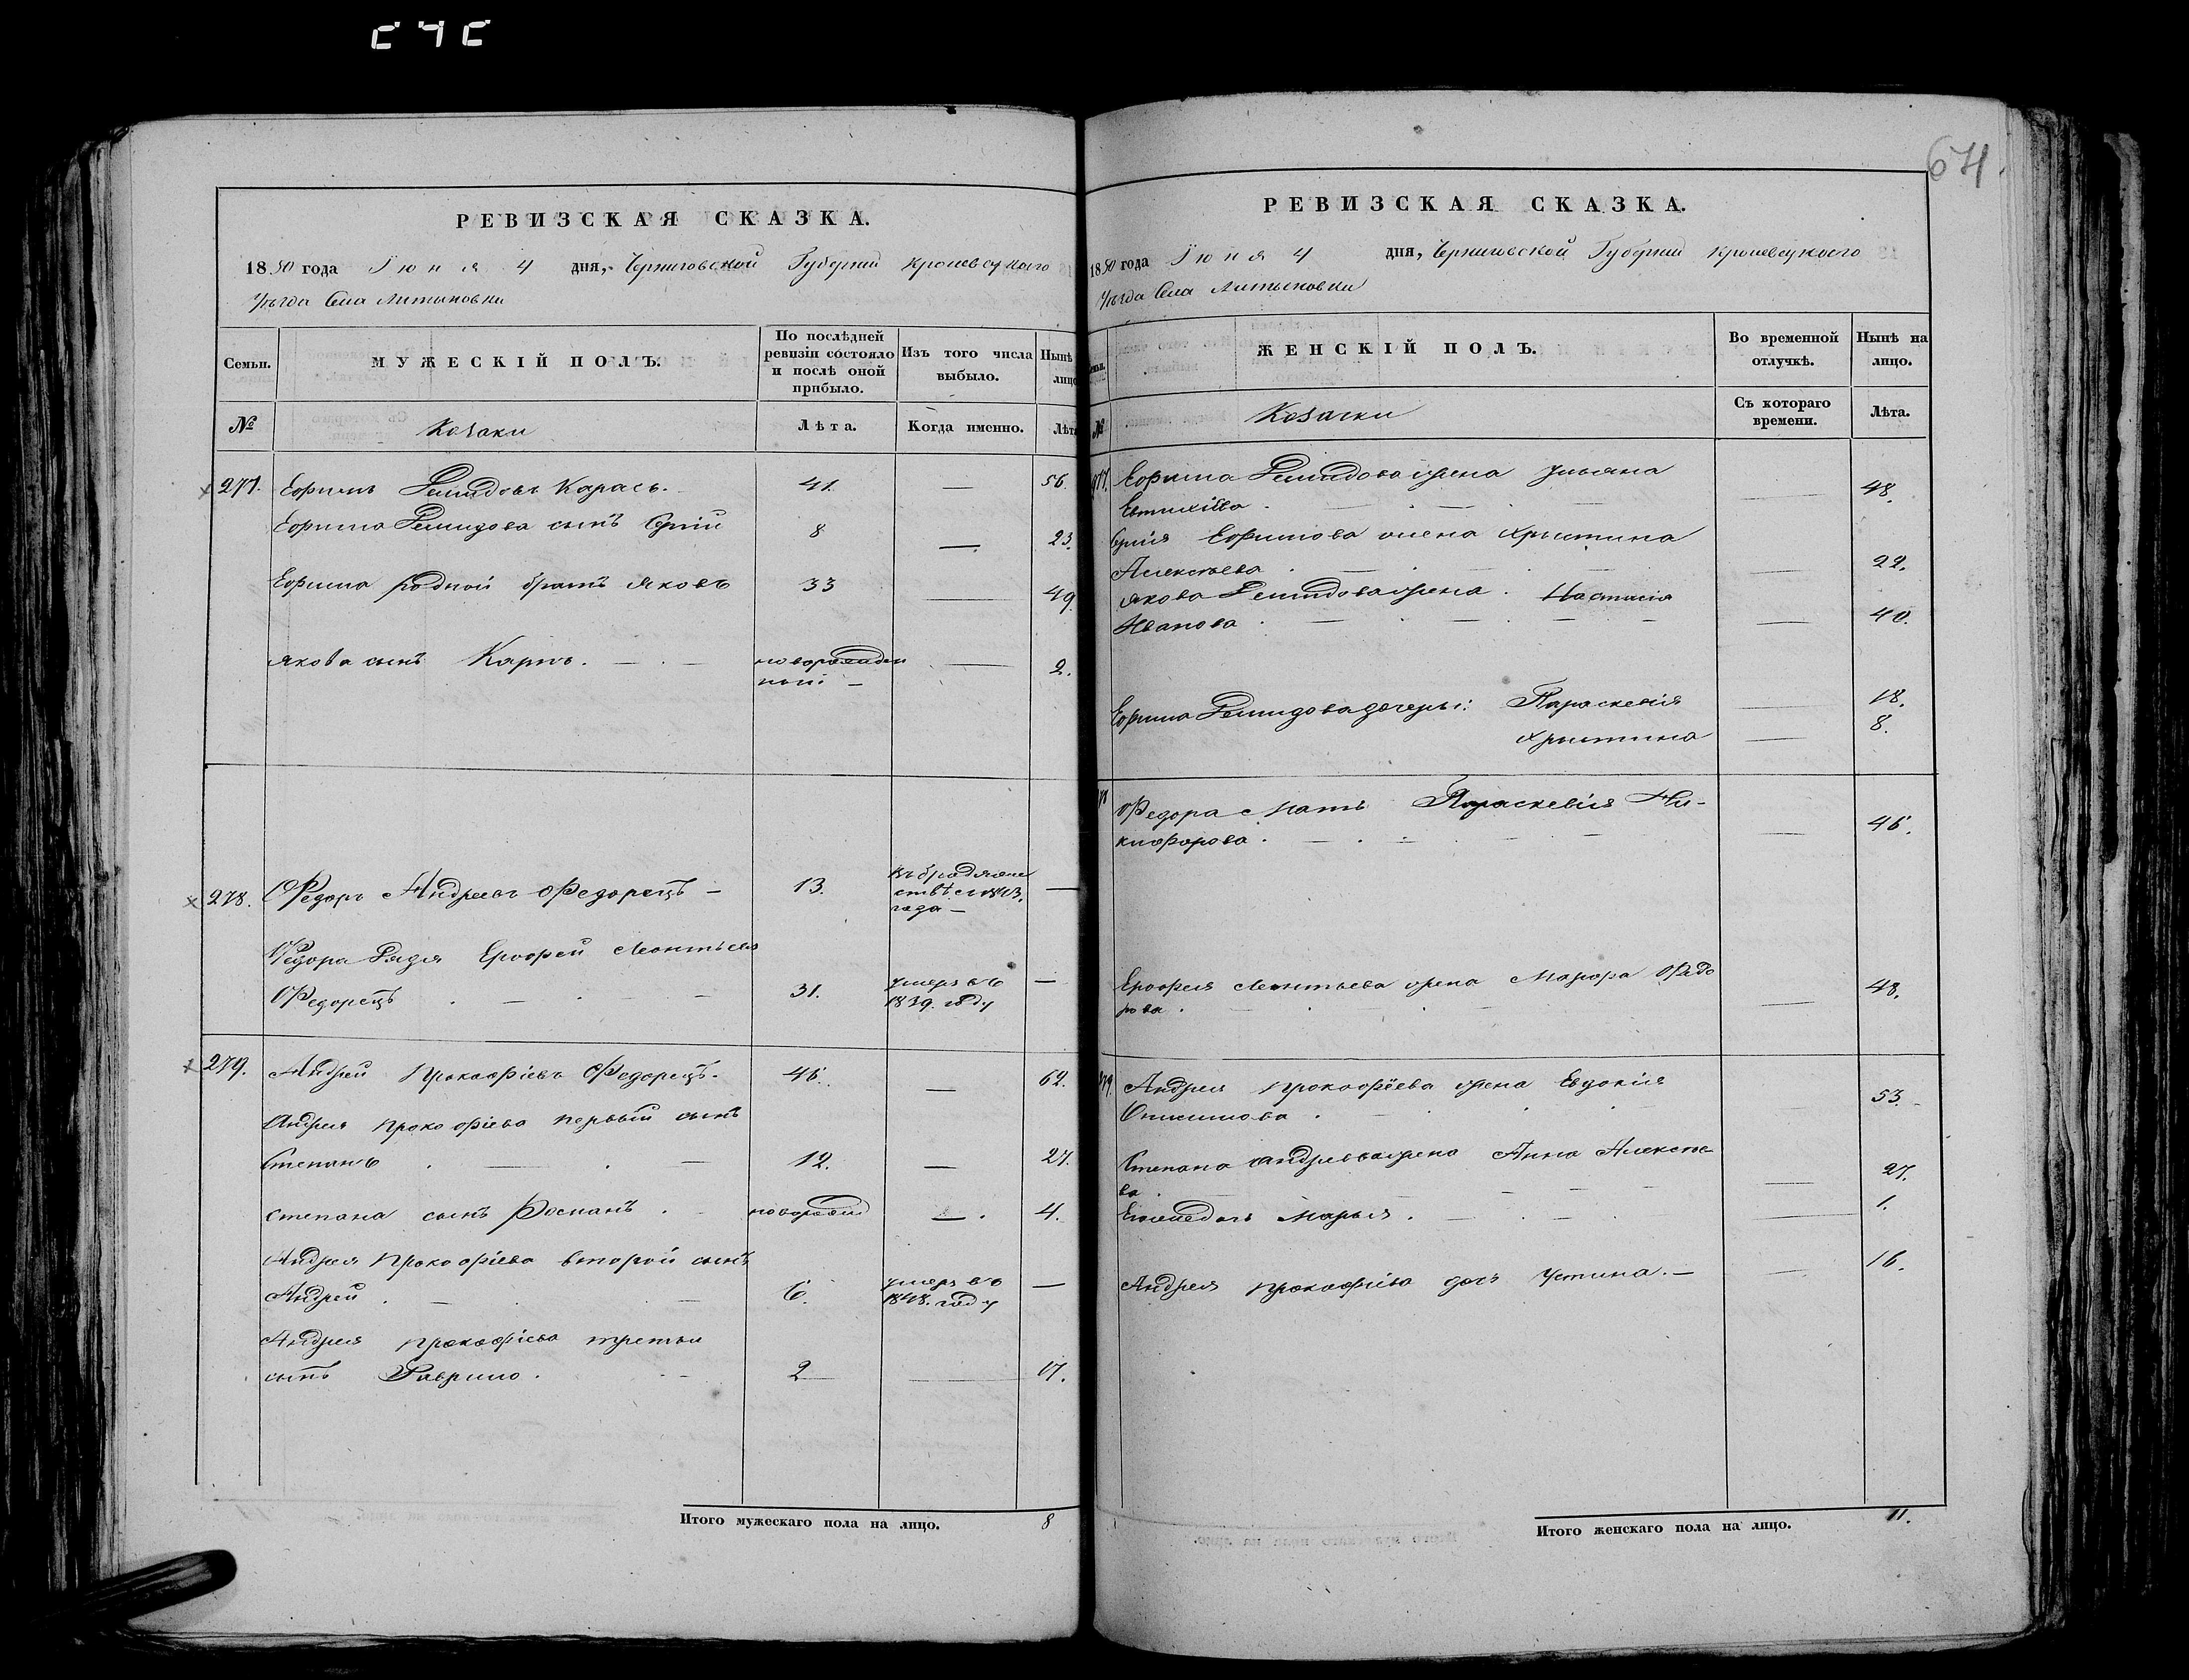 СЧС
64
РЕВИЗСКАЯ СКАЗКА.
1850 года Іюня 4 дня, Черниговской Губерніи Кролевецкаго
Уѣзда Села Литвиновки
Семьи.
МУЖЕСКІЙ ПОЛЪ.
По послѣдней ревизіи состояло и послѣ оной прибыло.
Изъ того числа выбыло.
Нынѣ
лицо
№
Козаки
Лѣта.
Когда именно.
Лѣта
277. Ефимъ Демидовъ Карась. 41. — 56.
Ефима Демидова сынъ Сергій 8 — 23.
Ефима родной братъ Яковъ 33 — 49
Якова сынъ Карпъ. — новорожден
ный — — 2.
278. Федоръ Андреевъ Федорецъ — 13. въ бродяже
ствѣ съ 1843.
года —
Федора дядя Ерофей Леонтьевъ
Федорецъ 31. умеръ въ
1839. году —
279. Андрей Прокофіевъ Федорецъ. 46. — 62.
Андрея Прокофіева первый сынъ
Степанъ 12. — 27.
Степана сынъ Романъ. новорожд — 4.
Андрея Прокофіева второй сынъ
Андрей 6. умеръ въ
1848. году —
Андрея Прокофіева третьи
сынъ Гаврило. 2 — 17.
Итого мужескаго пола на лицо. 8
РЕВИЗСКАЯ СКАЗКА.
1850 года Іюня 4 дня, Черниговской Губерніи Кролевецкаго
Уѣзда Села Литвиновки
ЖЕНСКІЙ ПОЛЪ.
Во временной отлучкѣ.
Нынѣ на лицо.
№
Козачки
Съ котораго времени.
Лѣта.
277. Ефима Демидова жена Ульяна
Евтихіева — 48.
Сергія Ефимова жена Христина
Алексѣева — 22.
Якова Демидова жена Настасія
Иванова — 40.
Ефима Демидова дочери: Параскевія — 18.
Христина — 8.
Федора мать Параскевія Ни-
кифорова — 46.
Ерофея Леонтьева жена Марфа Федо
рова — 48.
279. Андрея Прокофіева жена Евдокія
Онисимова — 53.
Степана Андреева жена Анна Алексѣе
ва — 27.
Ево дочь Марья. — 1.
Андрея Прокофіева дочь Устина. — 16.
Итого женскаго пола на лицо. 11.